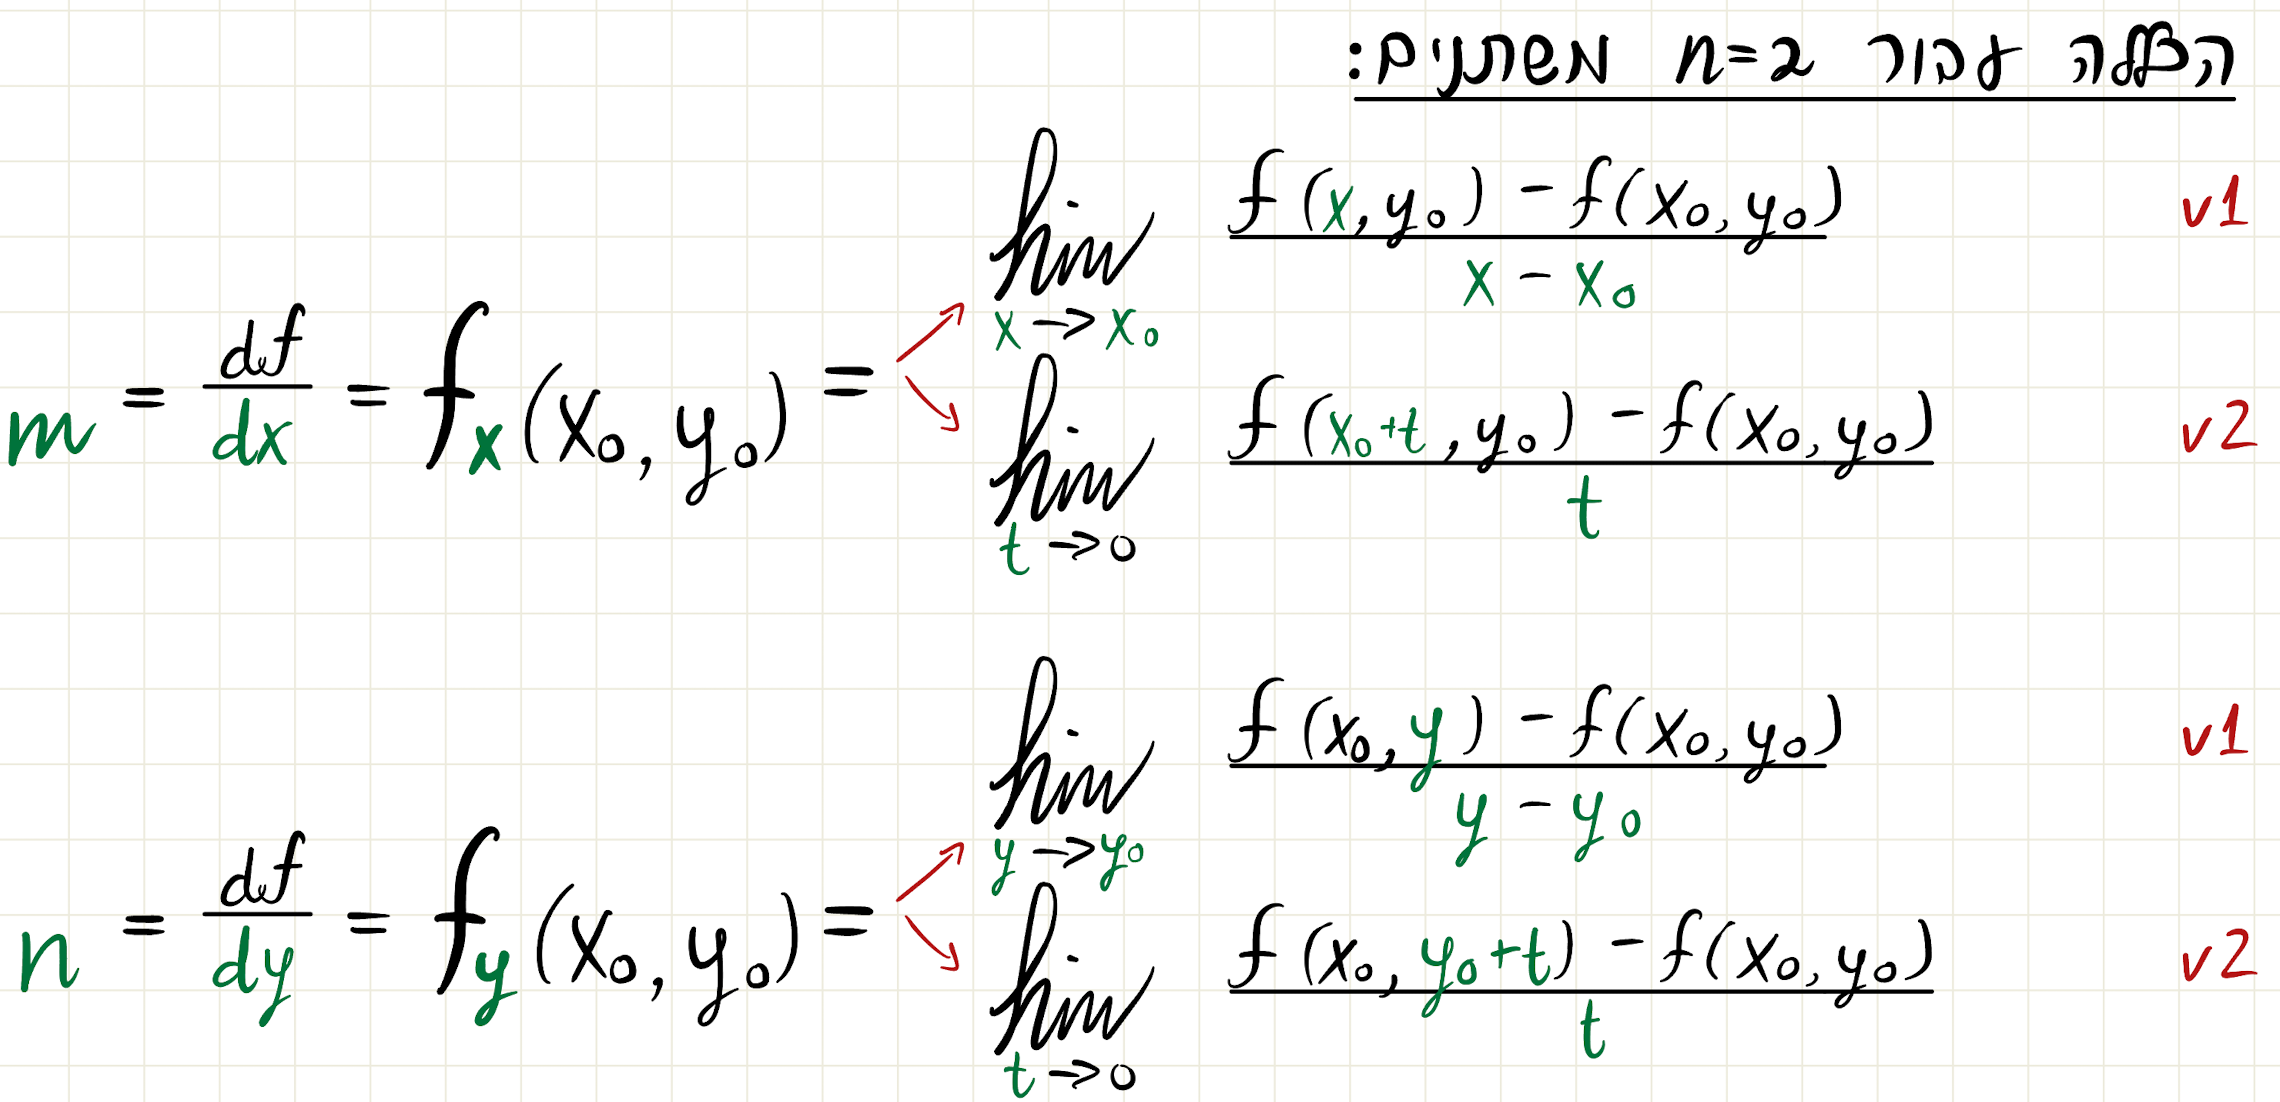 הכללה עבור n=2 משתנים:
m = df/dx = f_x(x₀, y₀) =
lim x→x₀ (f(x, y₀) − f(x₀, y₀)) / (x − x₀) v1
lim t→0 (f(x₀+t, y₀) − f(x₀, y₀)) / t v2
n = df/dy = f_y(x₀, y₀) =
lim y→y₀ (f(x₀, y) − f(x₀, y₀)) / (y − y₀) v1
lim t→0 (f(x₀, y₀+t) − f(x₀, y₀)) / t v2